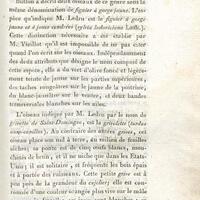 même dénomination de figuier à gorge jaune. L'es-
pèce qu'indique M. Ledru est le figuier à gorge
jaune et à joues cendrées (sylvia ludoviciana Lath.).
Cette distinction nécessaire a été établie par
M. Vieillot qu'il est impossible de ne pas citer
quand l'on écrit sur les oiseaux. Indépendamment
des deux attributs que désigne le nom composé de
cette espèce, elle a du vert d'olive foncé et légère-
ment teinté de jaune sur les parties supérieures,
des taches rougeâtres sur le jaune de la poitrine,
du blanc-jaunâtre sur le ventre, et deux bandes
transversales blanches sur les ailes.
L'oiseau indiqué par M. Ledru par le nom de
grivette de Saint-Domingue, est la grivelette (turdus
aurocapillus). Au contraire des autres grives, cet
oiseau place son nid à terre, au milieu de feuilles
sèches; sa ponte est de cinq œufs blancs, mou-
chetés de brun, et il ne niche que dans les Etats-
Unis; il est solitaire, et fréquente les bois épais
et à portée des ruisseaux. Cette petite grive est à
peu près de la grandeur du cujelier; elle est cou-
ronnée d'une couleur orangée plus vive sur le mâle